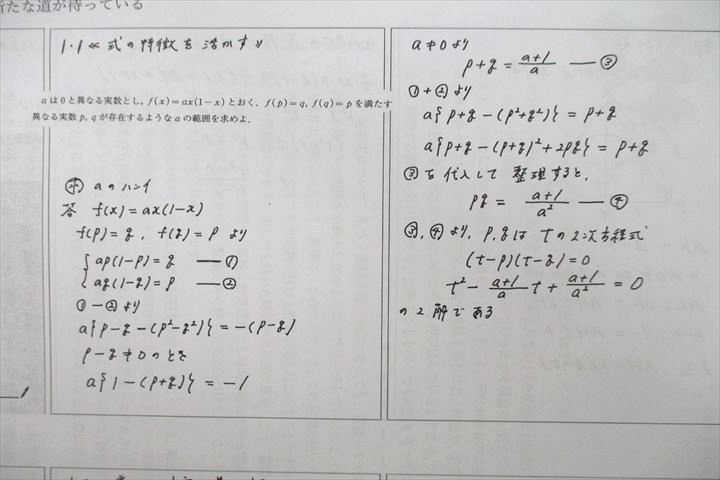 新たな道が待っている
1・1 ≪ 式の特徴を活かす 》
aは0と異なる実数とし，f(x)=ax(1−x)とおく．f(p)=q, f(q)=pを満たす
異なる実数p, qが存在するようなaの範囲を求めよ．
㋲ aのハンイ
答 f(x)=ax(1-x)
f(p)=q, f(q)=p より
ap(1-p)=q ―①
aq(1-q)=p ―②
①-②より
a{p-q-(p²-q²)}=-(p-q)
p-q≠0のとき
a{1-(p+q)}=-1
a≠0より
p+q=\frac{a+1}{a} ―③
①+②より
a{p+q-(p²+q²)}=p+q
a{p+q-(p+q)²+2pq}=p+q
③を代入して整理すると,
pq=\frac{a+1}{a²} ―④
③,④より, p,qはtの2次方程式
(t-p)(t-q)=0
t²-\frac{a+1}{a}t+\frac{a+1}{a²}=0
の2解である